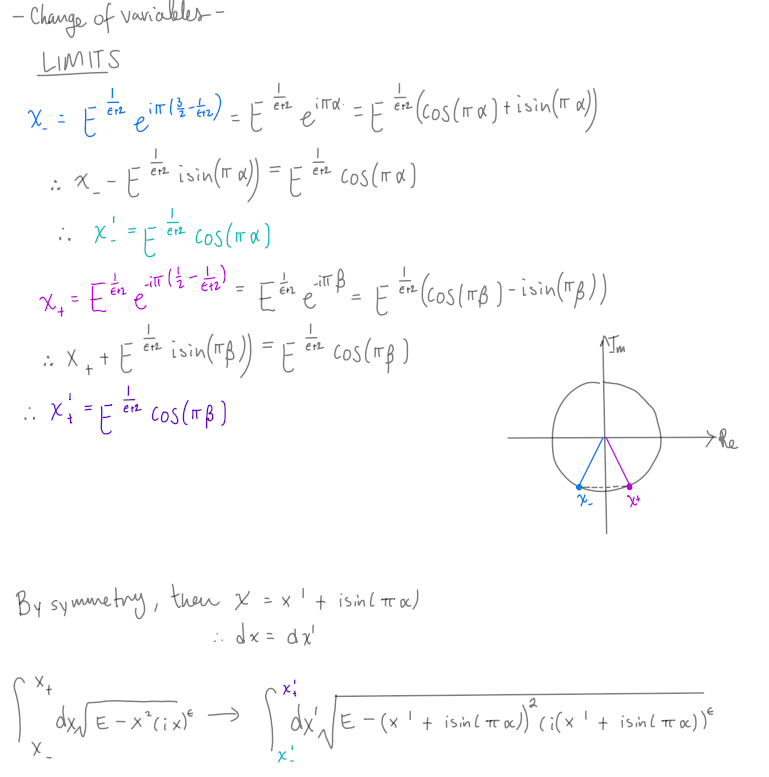 - Change of variables -
LIMITS
x_- = E^{1/(ϵ+2)} e^{iπ(3/2 - 1/(ϵ+2))} = E^{1/(ϵ+2)} e^{iπα} = E^{1/(ϵ+2)} (cos(πα) + isin(πα))
∴ x_- - E^{1/(ϵ+2)} isin(πα)) = E^{1/(ϵ+2)} cos(πα)
∴ x_-' = E^{1/(ϵ+2)} cos(πα)
x_+ = E^{1/(ϵ+2)} e^{-iπ(1/2 - 1/(ϵ+2))} = E^{1/(ϵ+2)} e^{-iπβ} = E^{1/(ϵ+2)} (cos(πβ) - isin(πβ))
∴ x_+ + E^{1/(ϵ+2)} isin(πβ)) = E^{1/(ϵ+2)} cos(πβ)
∴ x_+' = E^{1/(ϵ+2)} cos(πβ)
Im
Re
x_- x+
By symmetry, then x = x' + isin(πα)
∴ dx = dx'
∫_{x_-}^{x_+} dx √(E - x²(ix)^ϵ) → ∫_{x_-'}^{x_+'} dx' √(E - (x' + isin(πα))² (i(x' + isin(πα))^ϵ)